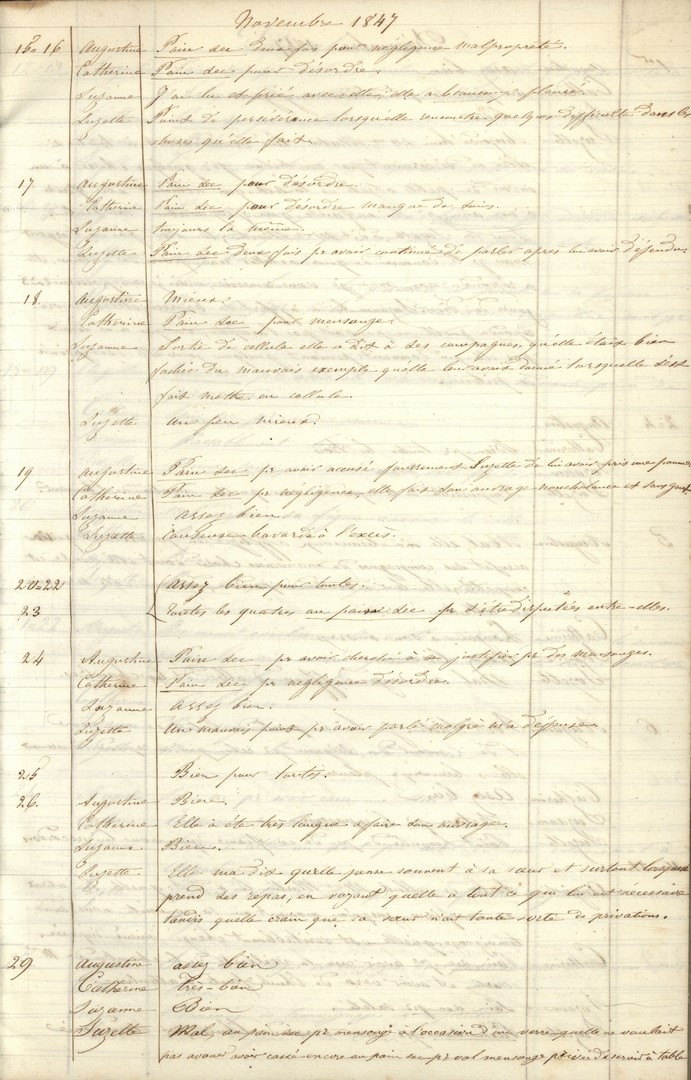 Novembre 1847
15-16 Augustine Pain sec deux fois pour négligence malpropreté.
Catherine Pain sec pour désordre.
Suzanne J'ai lu et prié avec elle, elle a beaucoup pleuré.
Suzette Point de persévérance lorsqu'elle rencontre quelque difficulté dans les
choses qu'elle fait.
17 Augustine Pain sec pour désordre
Catherine Pain sec pour désordre manque de soins.
Suzanne toujours la même.
Suzette Pain sec deux fois pr avoir continué de parler après lui avoir défendu.
18. Augustine Mieux.
Catherine Pain sec pour mensonge.
Suzanne Sortie de cellule elle a dit à ses compagnes, qu'elle était bien
fachée du mauvais exemple qu'elle leur avait donné lorsquelle s'est
fait mettre en cellule.
Suzette un peu mieux.
19 Augustine Pain sec pr avoir accusé faussement Suzette de lui avoir pris une pomme
Catherine Pain sec pr négligence, elle fait son ouvrage nonchalance et sans gout
Suzanne assez bien
Suzette Causeuse bavarde à l'excès.
20-22 assez bien pour toutes.
23 toutes les quatres au pain sec pr s'être disputées entre-elles.
24 Augustine Pain sec pr avoir cherché à se justifier pr des mensonges.
Catherine Pain sec pr négligence désordre.
Suzanne assez bien.
Suzette Un mauvais point pr avoir parlé malgré ma défense
25 Bien pour toutes.
26. Augustine Bien.
Catherine Elle à été très longue a faire son ouvrage.
Suzanne Bien.
Suzette Elle ma dit quelle pense souvent à sa sœur et surtout lorsquelle
prend ses repas, en voyant quelle a tout ce qui lui est nécessaire
tandis quelle crain que sa sœur n'ait toute sorte de privations.
29 Augustine assez bien
Catherine très-bien
Suzanne Bien
Suzette Mal, au pain sec pr mensonge à l'occasion d'un verre quelle ne voulait
pas avouer avoir cassé encore au pain sec pr vol mensonge à table